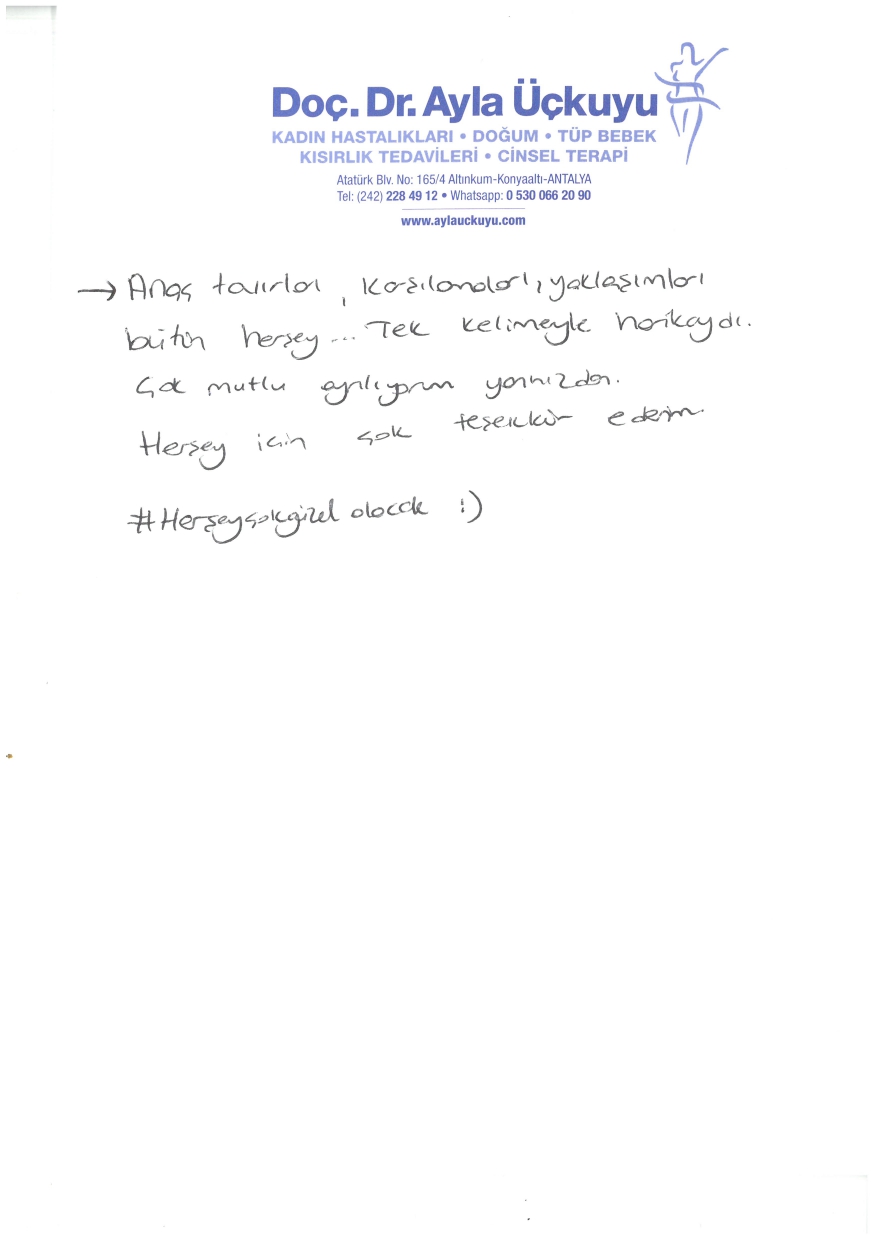 Doç. Dr. Ayla Üçkuyu
KADIN HASTALIKLARI • DOĞUM • TÜP BEBEK
KISIRLIK TEDAVİLERİ • CİNSEL TERAPİ
Atatürk Blv. No: 165/4 Altınkum-Konyaaltı-ANTALYA
Tel: (242) 228 49 12 • Whatsapp: 0 530 066 20 90
www.aylauckuyu.com
→ Anaç tavırları, karşılamaları, yaklaşımları
bütün herşey... Tek kelimeyle harikaydı.
Çok mutlu ayrılıyorum yanınızdan.
Herşey için çok teşekkür ederim.
#Herşeyçokgüzel olacak :)